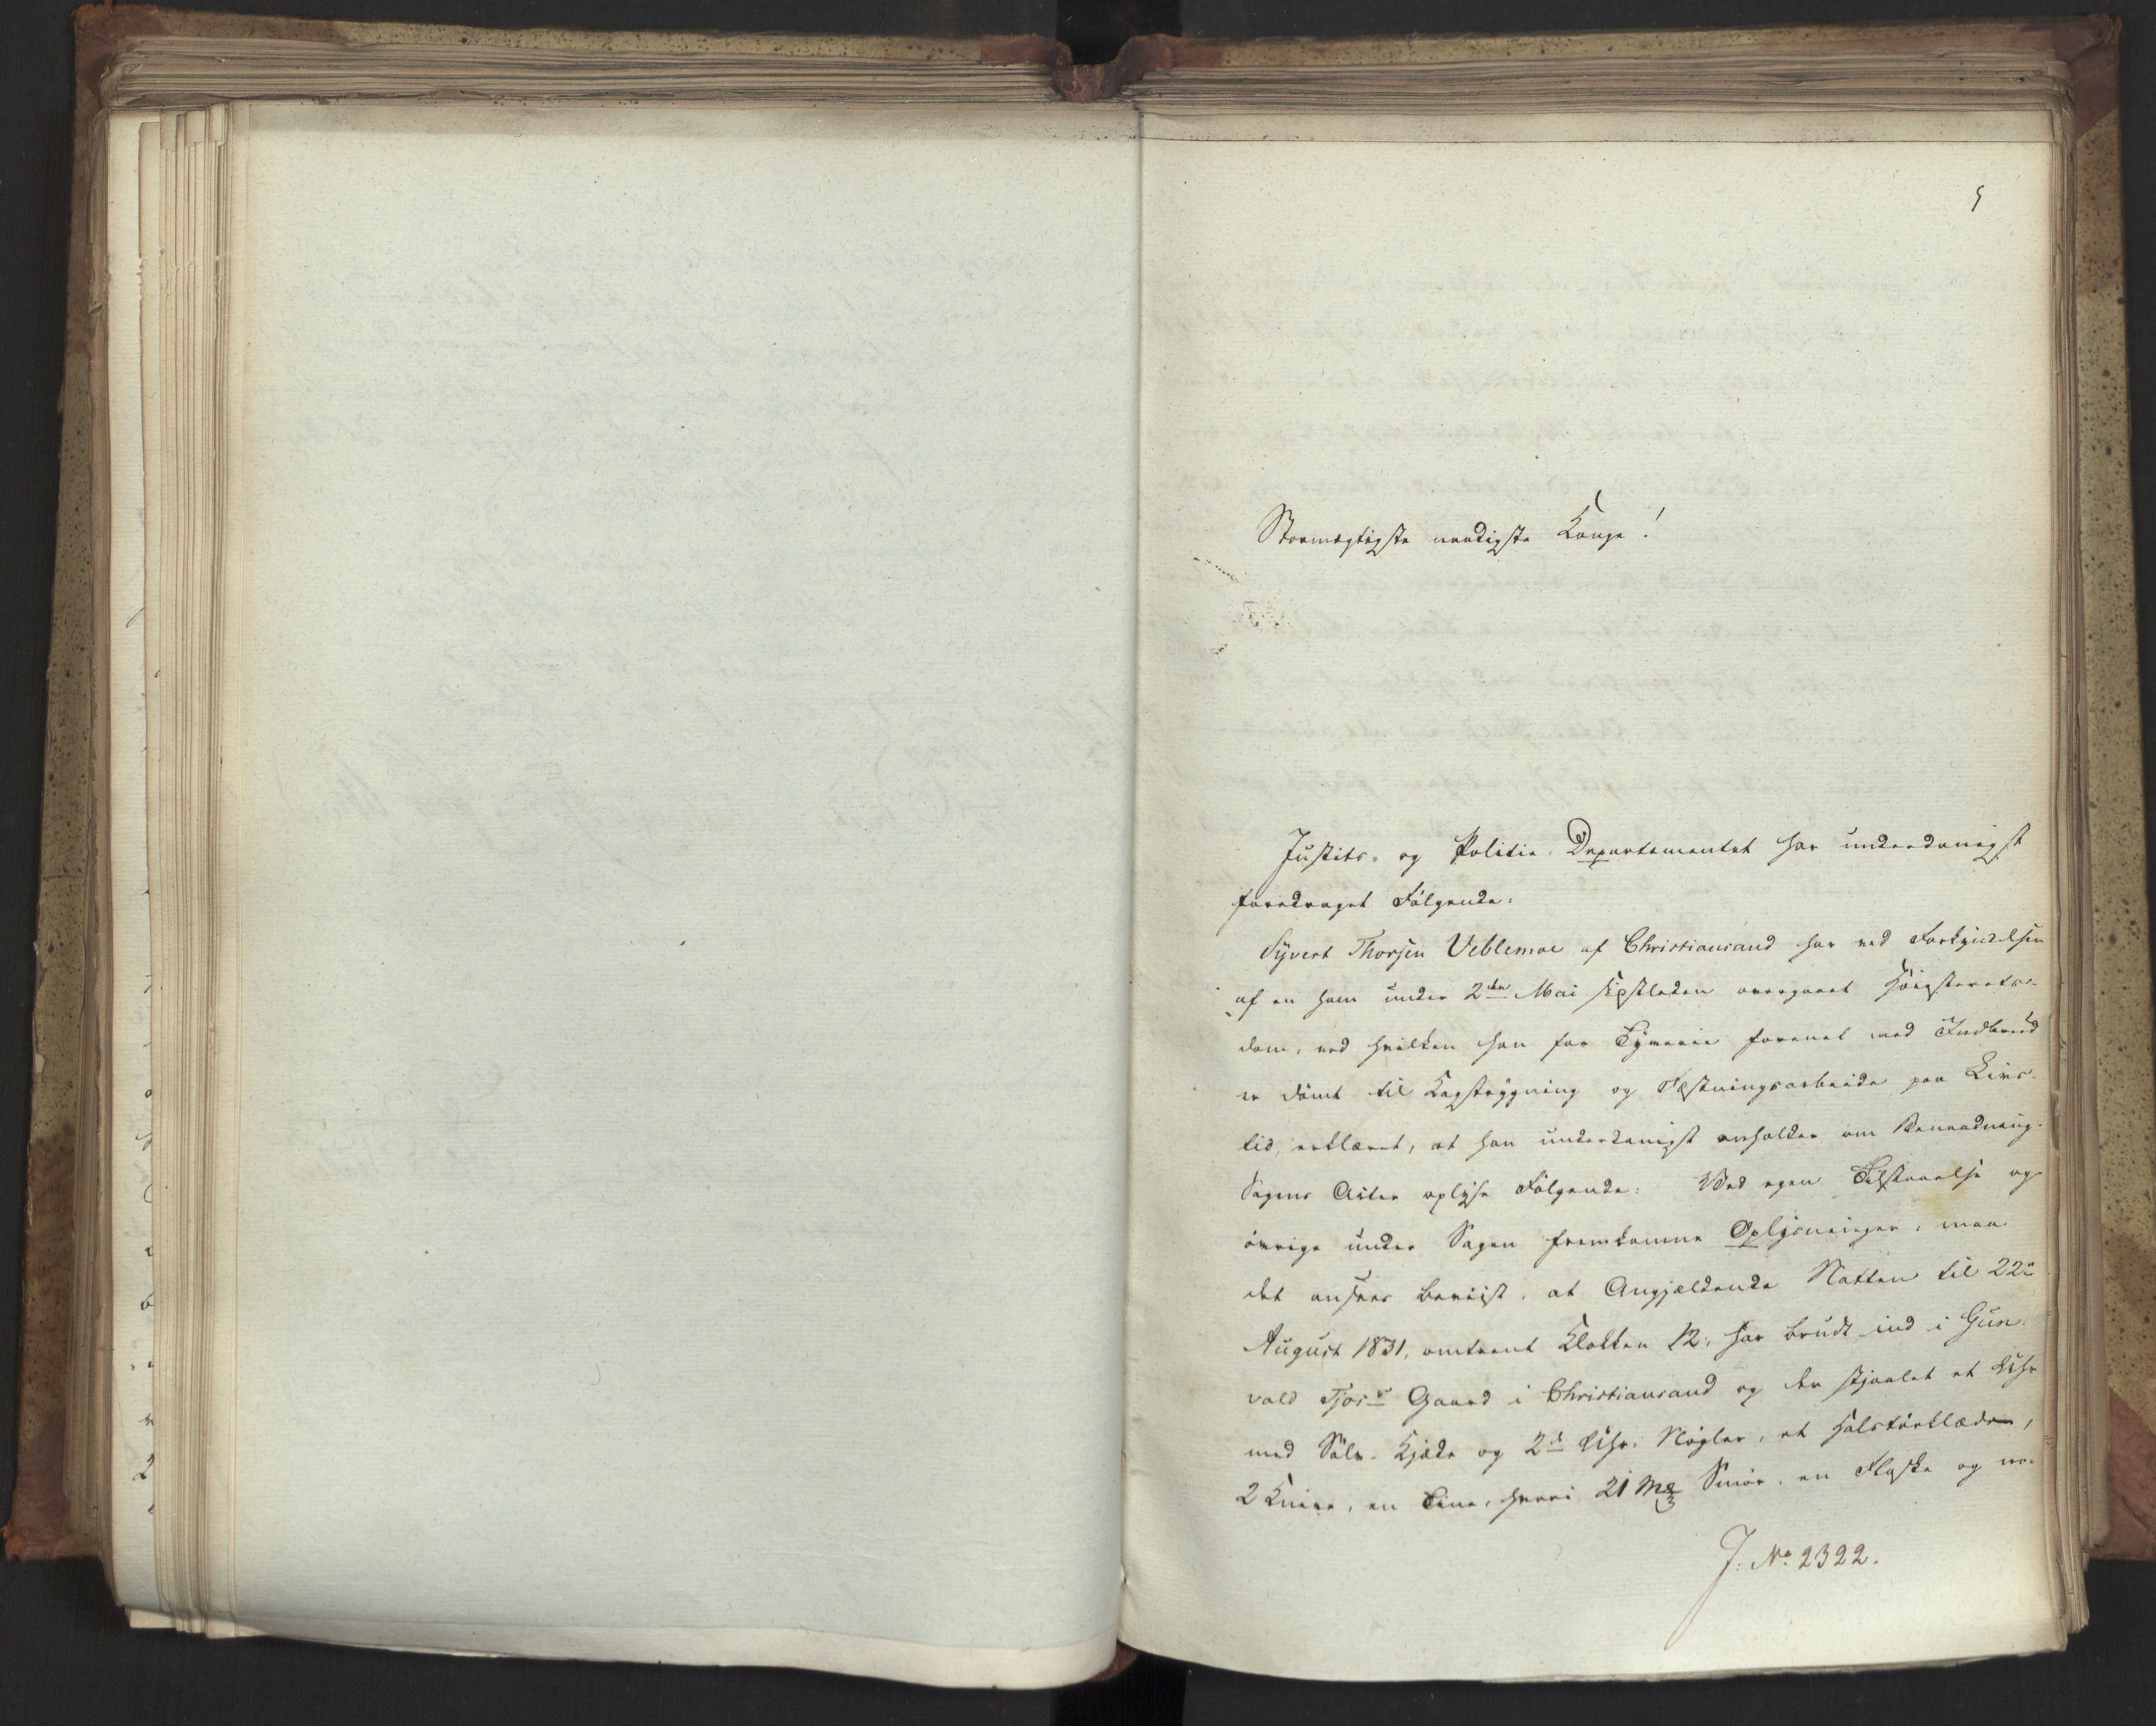 5
Stormægtigste naadigste Konge!
Justits- og Politie-Departementet har underdanigst
foredraget Følgende:
Syvert Thorsen Veblemoe af Christiansand har ved Forkyndelsen
af en ham under 2den Mai sidstleden overgaaet Høiesterets-
dom, ved hvilken han for Tyverie forenet med Indbrud
er dömt til Kagstrygning og Fæstningsarbeide paa Livs-
tid, erklæret, at han underdanigst anholder om Benaadning.
Sagens Acter oplyse Følgende: Ved egen Tilstaaelse og
övrige under Sagen fremkomne Oplysninger, maa
det ansees beviist, at Angjældende Natten til 22de
August 1831, omtrent Klokken 12, har brudt ind i Gun-
vald Tjos's Gaard i Christiansand og der stjaalet et Uhr
med Sölv-Kjæde og 2de Uhr-Nøgler, et Halstörklæde,
2 Knive, en Tine, hvori 21 Mk Smör, en Flaske og no-
J. No 2322.